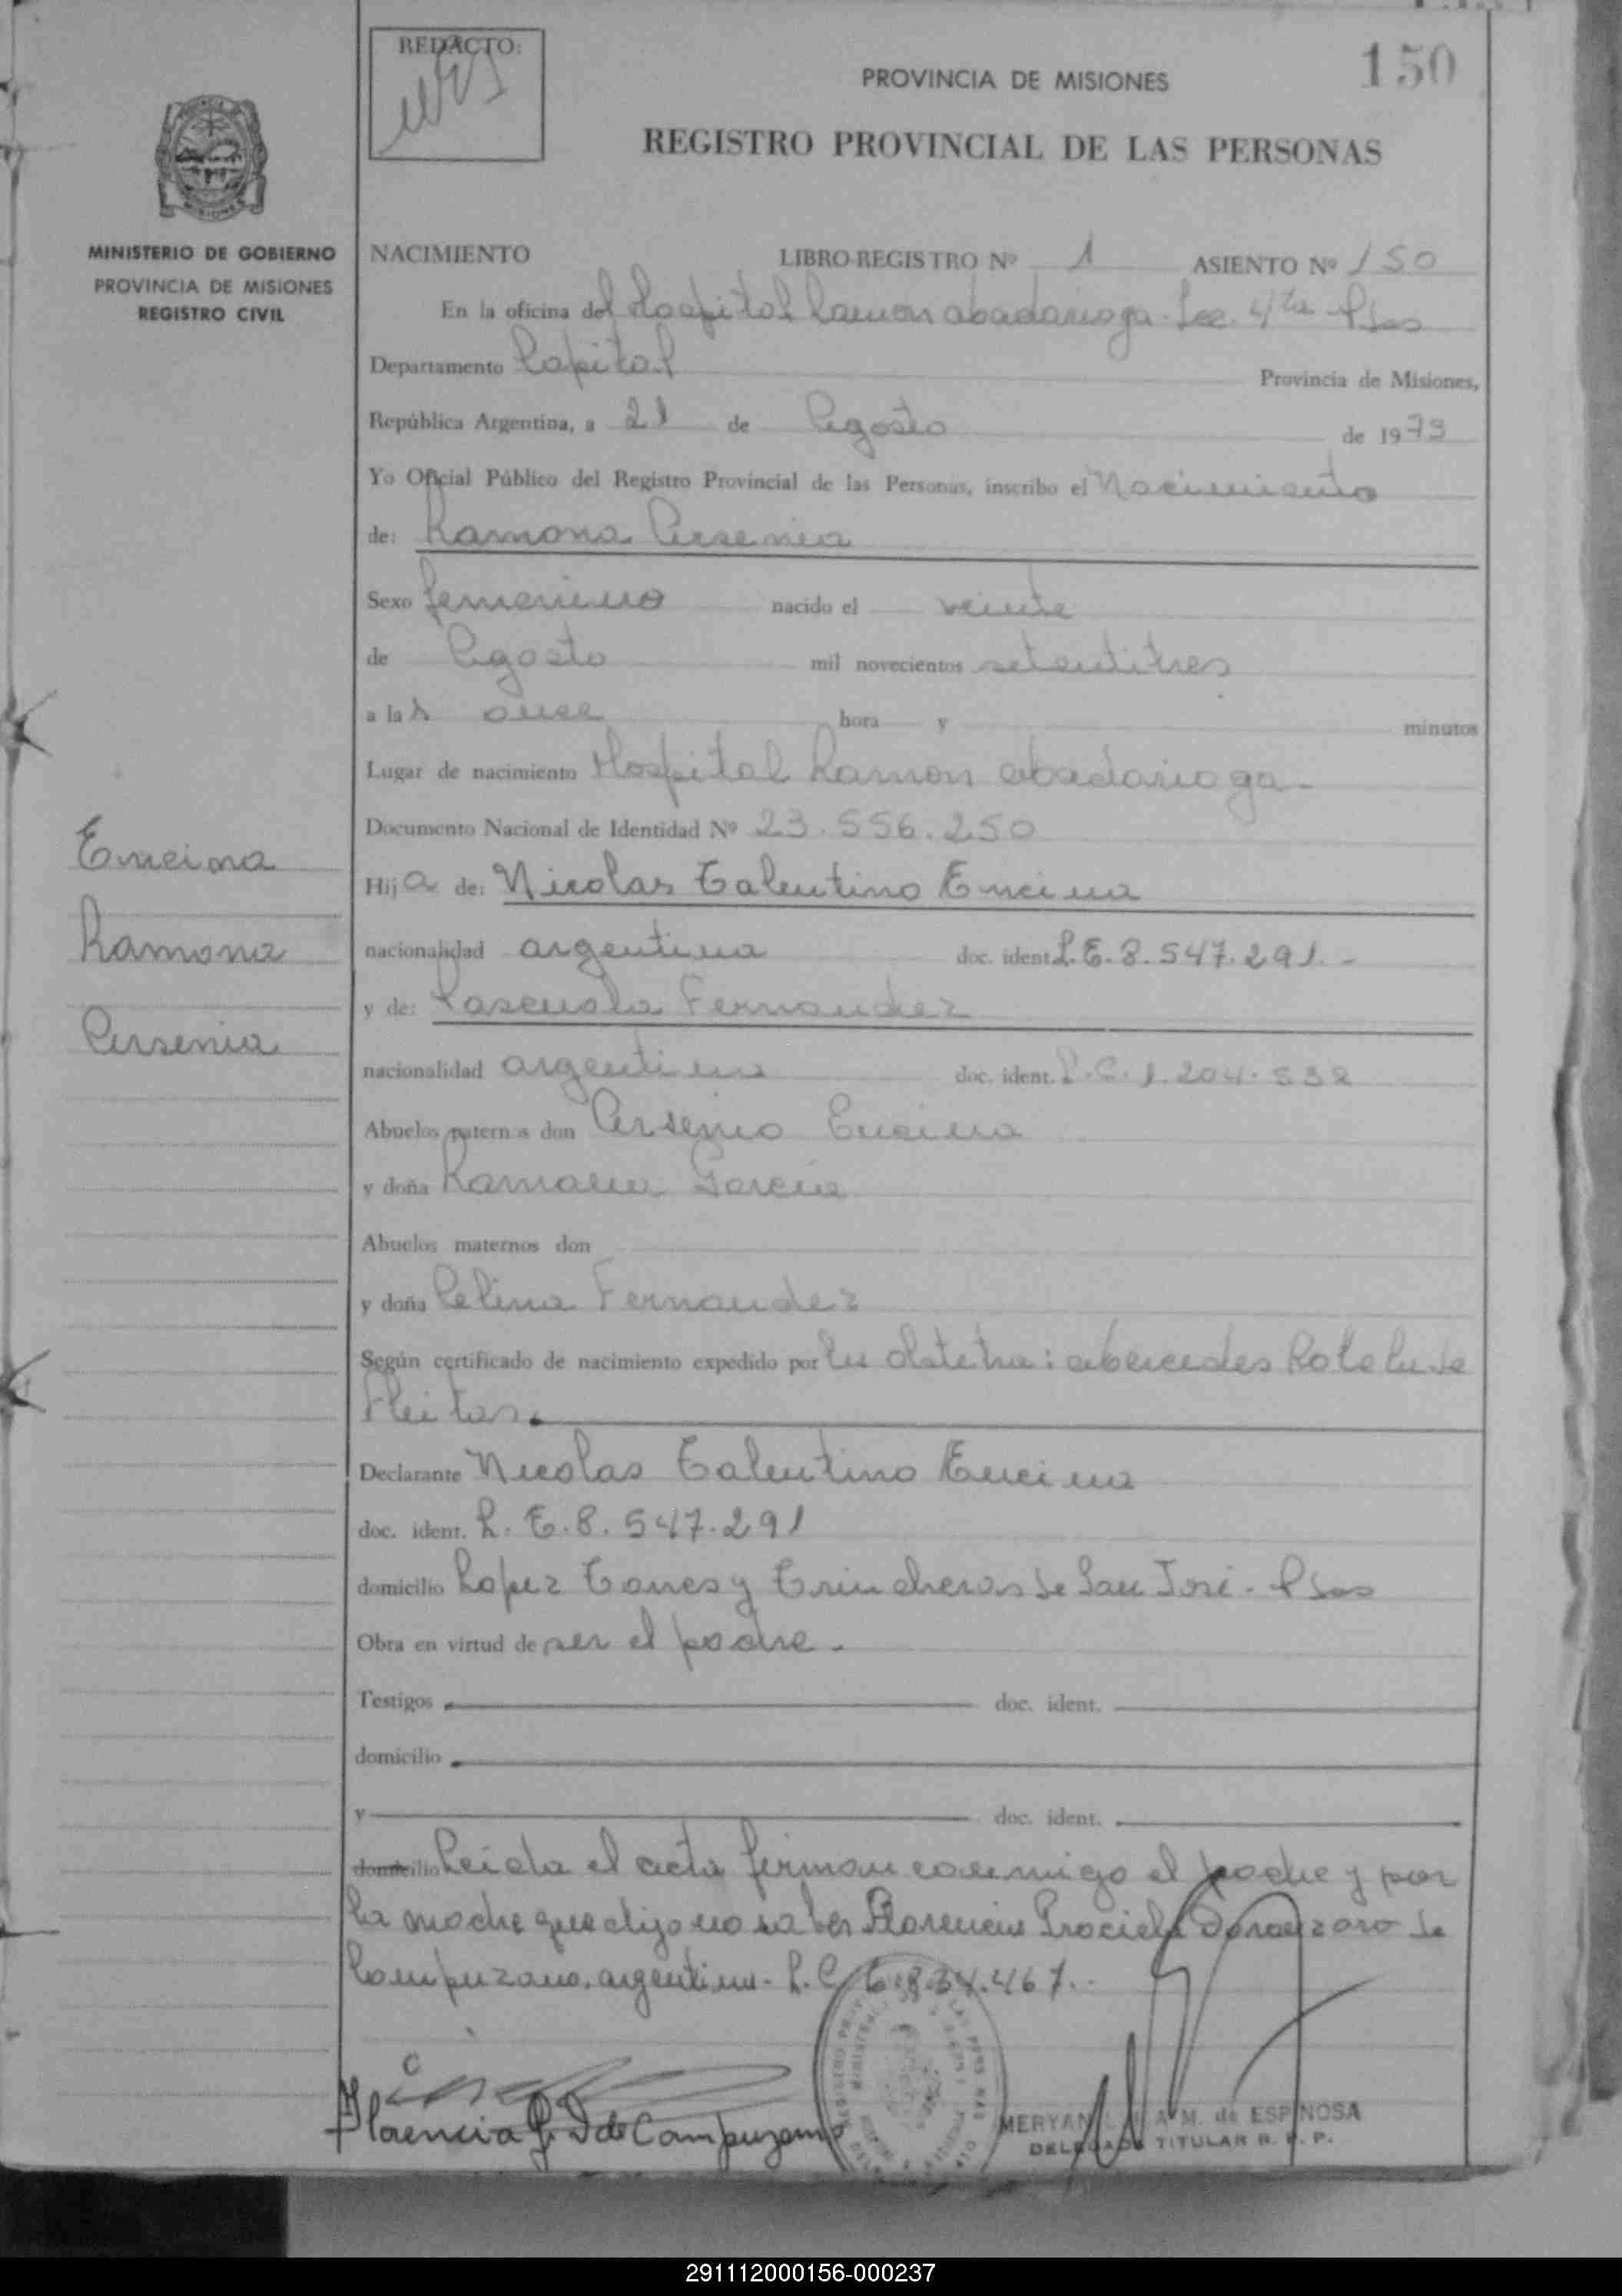 REDACTO:
150
PROVINCIA DE MISIONES
REGISTRO PROVINCIAL DE LAS PERSONAS
MISIONES
MINISTERIO DE GOBIERNO
PROVINCIA DE MISIONES
REGISTRO CIVIL
NACIMIENTO LIBRO-REGISTRO Nº 1 ASIENTO Nº 150
En la oficina del Hospital Ramon Madariaga - Sec. 4ta - Psas
Departamento Capital Provincia de Misiones,
República Argentina, a 21 de Agosto de 1973
Yo Oficial Público del Registro Provincial de las Personas, inscribo el Nacimiento
de: Ramona Arsenia
Sexo femenino nacido el veinte
de Agosto mil novecientos setentitres
a las once hora y minutos
Lugar de nacimiento Hospital Ramon Madariaga -
Documento Nacional de Identidad Nº 23.556.250
Encina
Ramona
Arsenia
Hija de: Nicolas Talentino Encina
nacionalidad argentina doc. ident. L.E. 8.547.291.-
y de: Pascuala Fernandez
nacionalidad argentina doc. ident. L.C. 1.204.532
Abuelos paternos don Arsenio Encina
y doña Ramona Garcia
Abuelos maternos don
y doña Celina Fernandez
Según certificado de nacimiento expedido por la obstetra: Mercedes de
Fleitas.
Declarante Nicolas Talentino Encina
doc. ident. L. E. 8.547.291
domicilio Lopez Torres y Trincheras de San José - Psas
Obra en virtud de ser el padre -
Testigos doc. ident.
domicilio
y doc. ident.
domicilio Leida el acta firman conmigo el padre y por
la madre que dijo no saber Florencia de
Campuzano, argentina - L.C. 6.834.467.-
Florencia G. D de Campuzano
M. de ESPINOSA
DELEGADA TITULAR R. P. P.
291112000156-000237